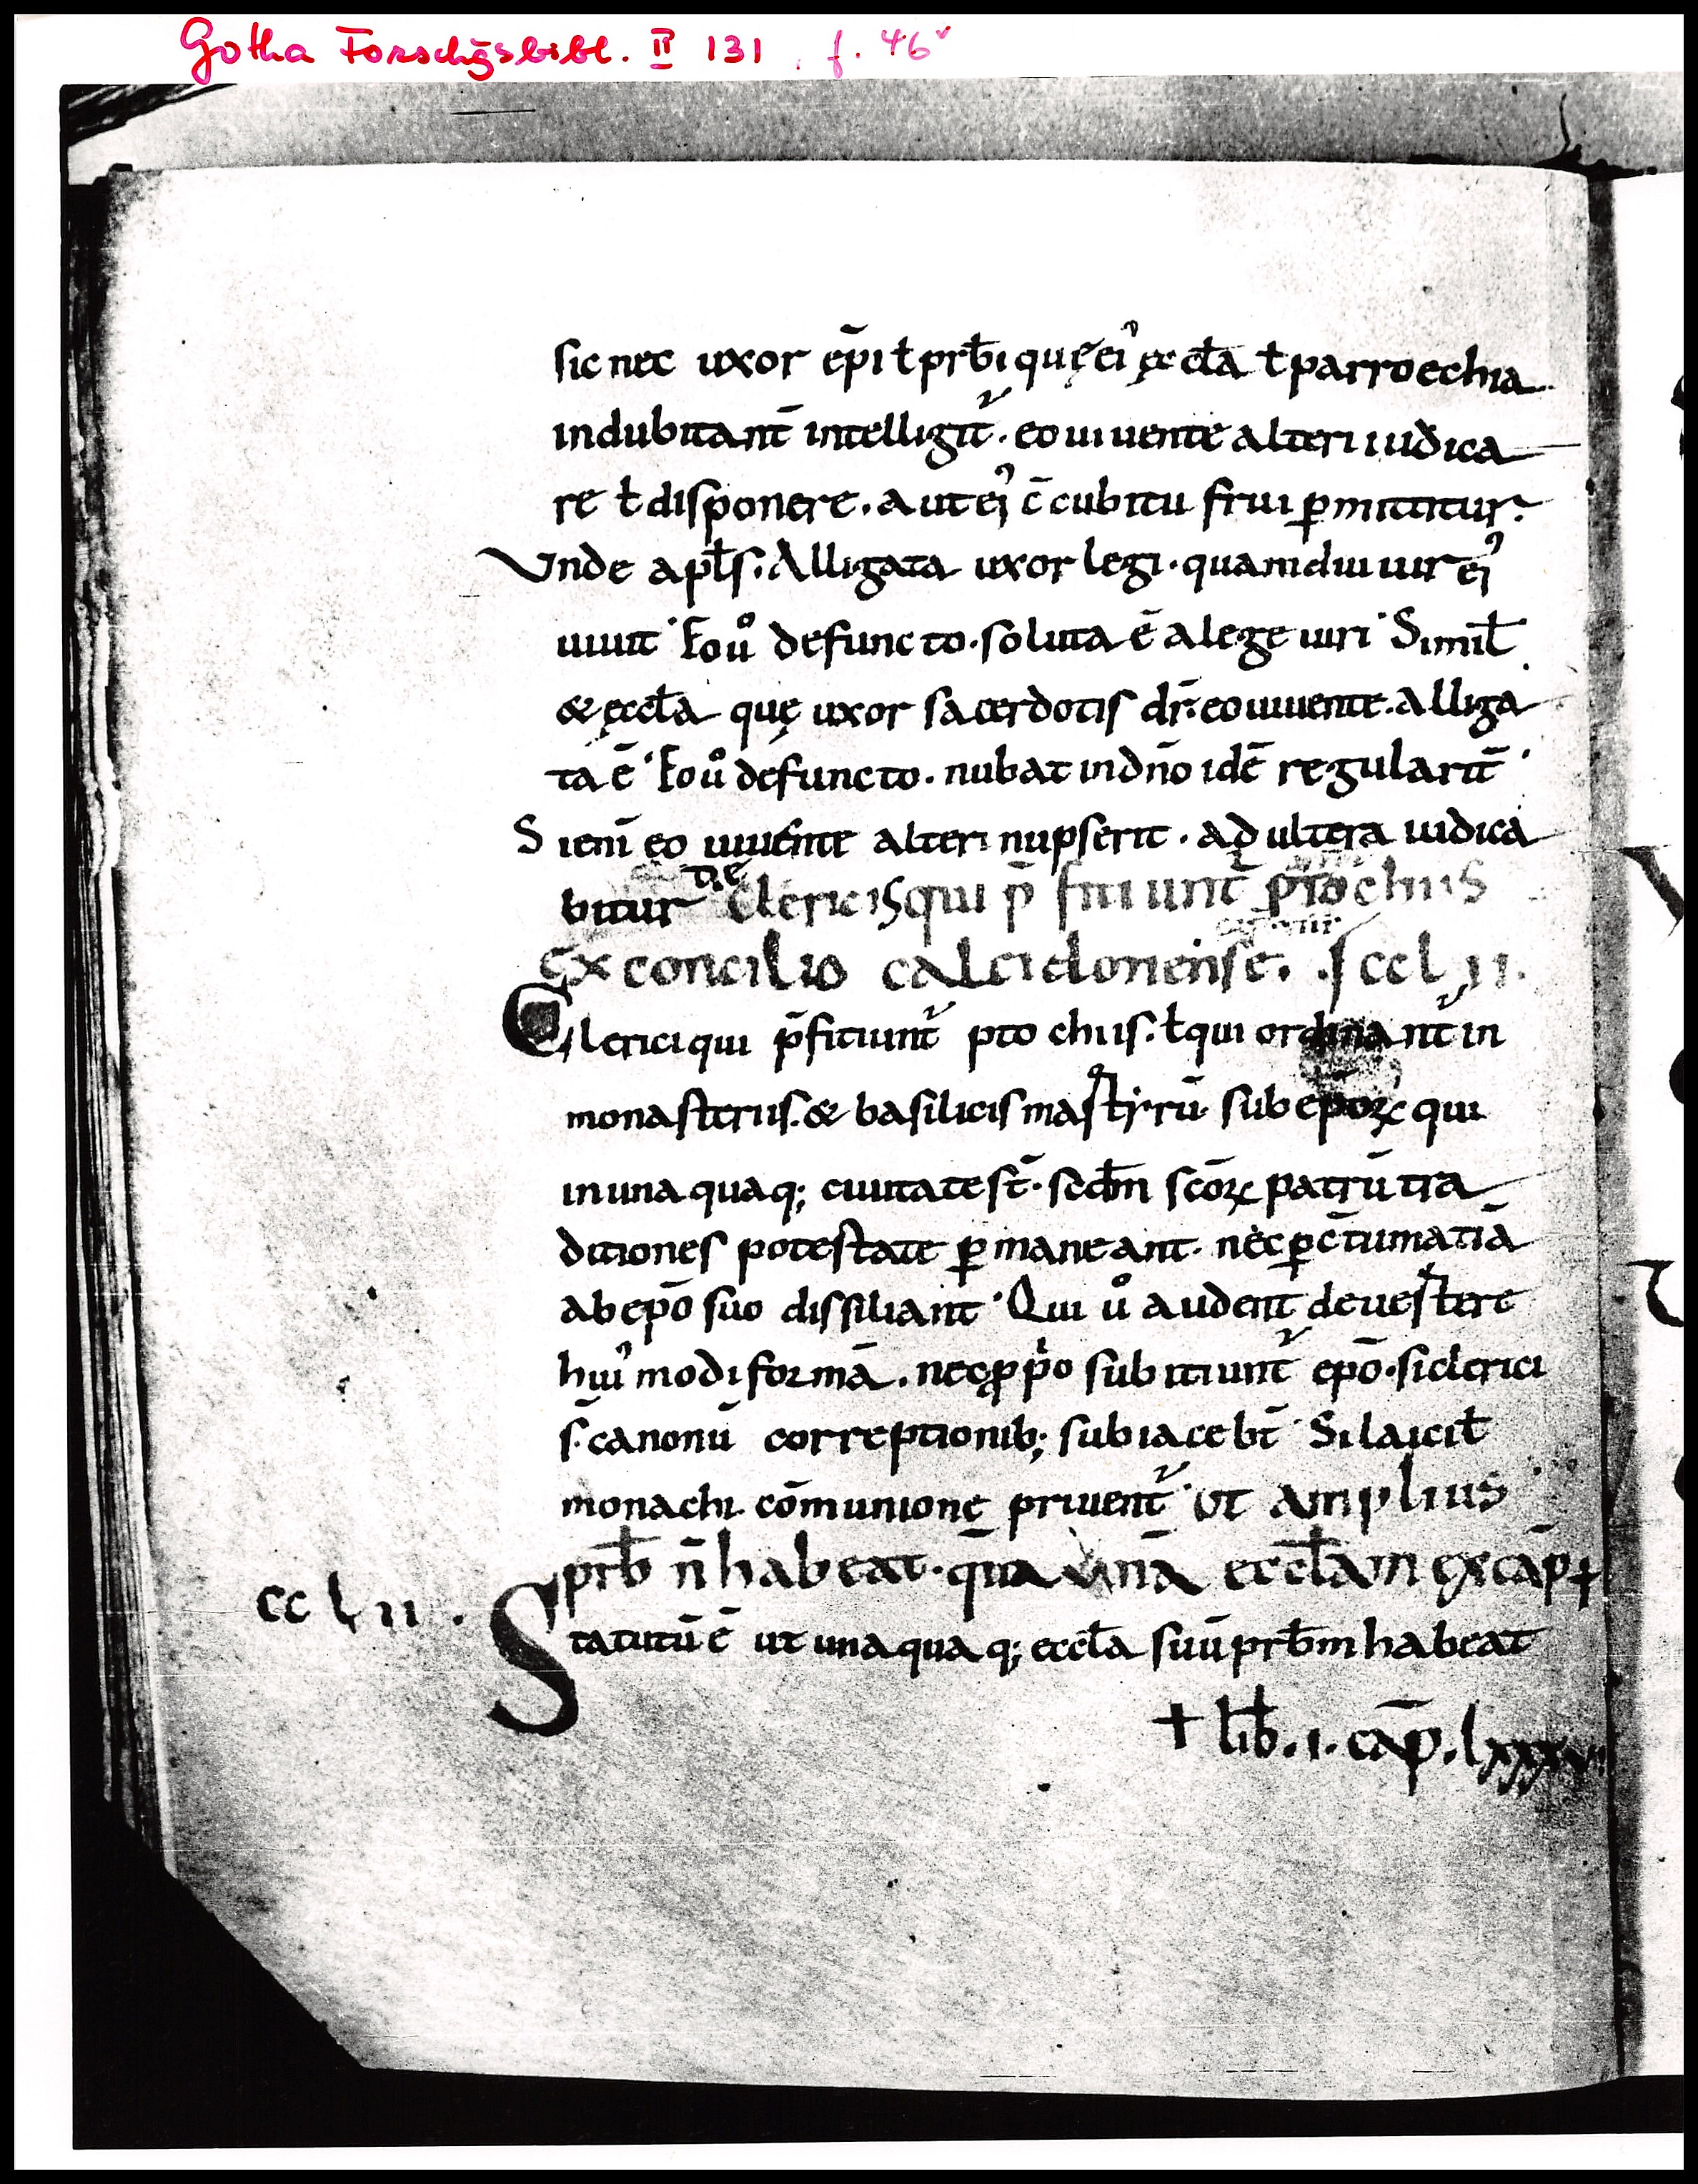 Gotha Forschgsbibl. II 131 f. 46v
sic nec uxor ep̄i ł prƀi quę ei᾽ ęccła ł parroechia
indubitant̄ intelligit᷑. eo uiuente alteri iudica
re ł disponere. aut ei᾽ c̄cubitu frui ꝑmittitur.
Vnde apłs. Alligata uxor legi. quamdiu uir ei᾽
uiuit. Eo uͦ defuncto. soluta ē a lege uiri. Simił
& ęccła quę uxor sacerdotis dr̄. eo uiuente. alliga
ta ē. Eo uͦ defuncto. nubat in dn̄o idē regularit̄.
Si enī eo uiuente alteri nupserit. adultera iudica
bitur De clericis qui p̄ficiunt᷑ ptochiis
Ex concilio calcidonense. .ſccl II.
Clerici qui p̄fitiunt᷑ ptochiis. ł qui ordinant in
monasteriis. & basilicis martirū sub ep̄oꝝ qui
in una quaq; ciuitate st̄. scdm̄ scōꝝ patrū tra
ditiones potestate ꝑmaneant. nec ꝑ c̄tumatiā
ab ep̄o suo dissiliant. Qui uͦ audent deuertere
hui᾽modi formā. nec ꝓpo subitiunt᷑ ep̄o. si clerici
s̄. canonū correptionib; subiacebt̄. Si laici ł
monachi. cōmunione priuent᷑. Ut amplius
prƀ n̄ habeat. quā unā eccłam ex cap̄ ✝
cc l II.
Statutū ē ut una quaq; eccła suū prƀm habeat
✝ liƀ. I. cap̄. lxxxvi